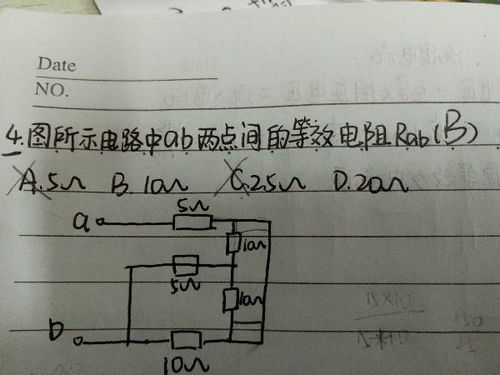 Date
NO.
4.图所示电路中ab两点间的等效电阻Rab(B)
A.5Ω B.10Ω C.25Ω D.20Ω
5Ω
a
10Ω
5Ω
10Ω
b
10Ω